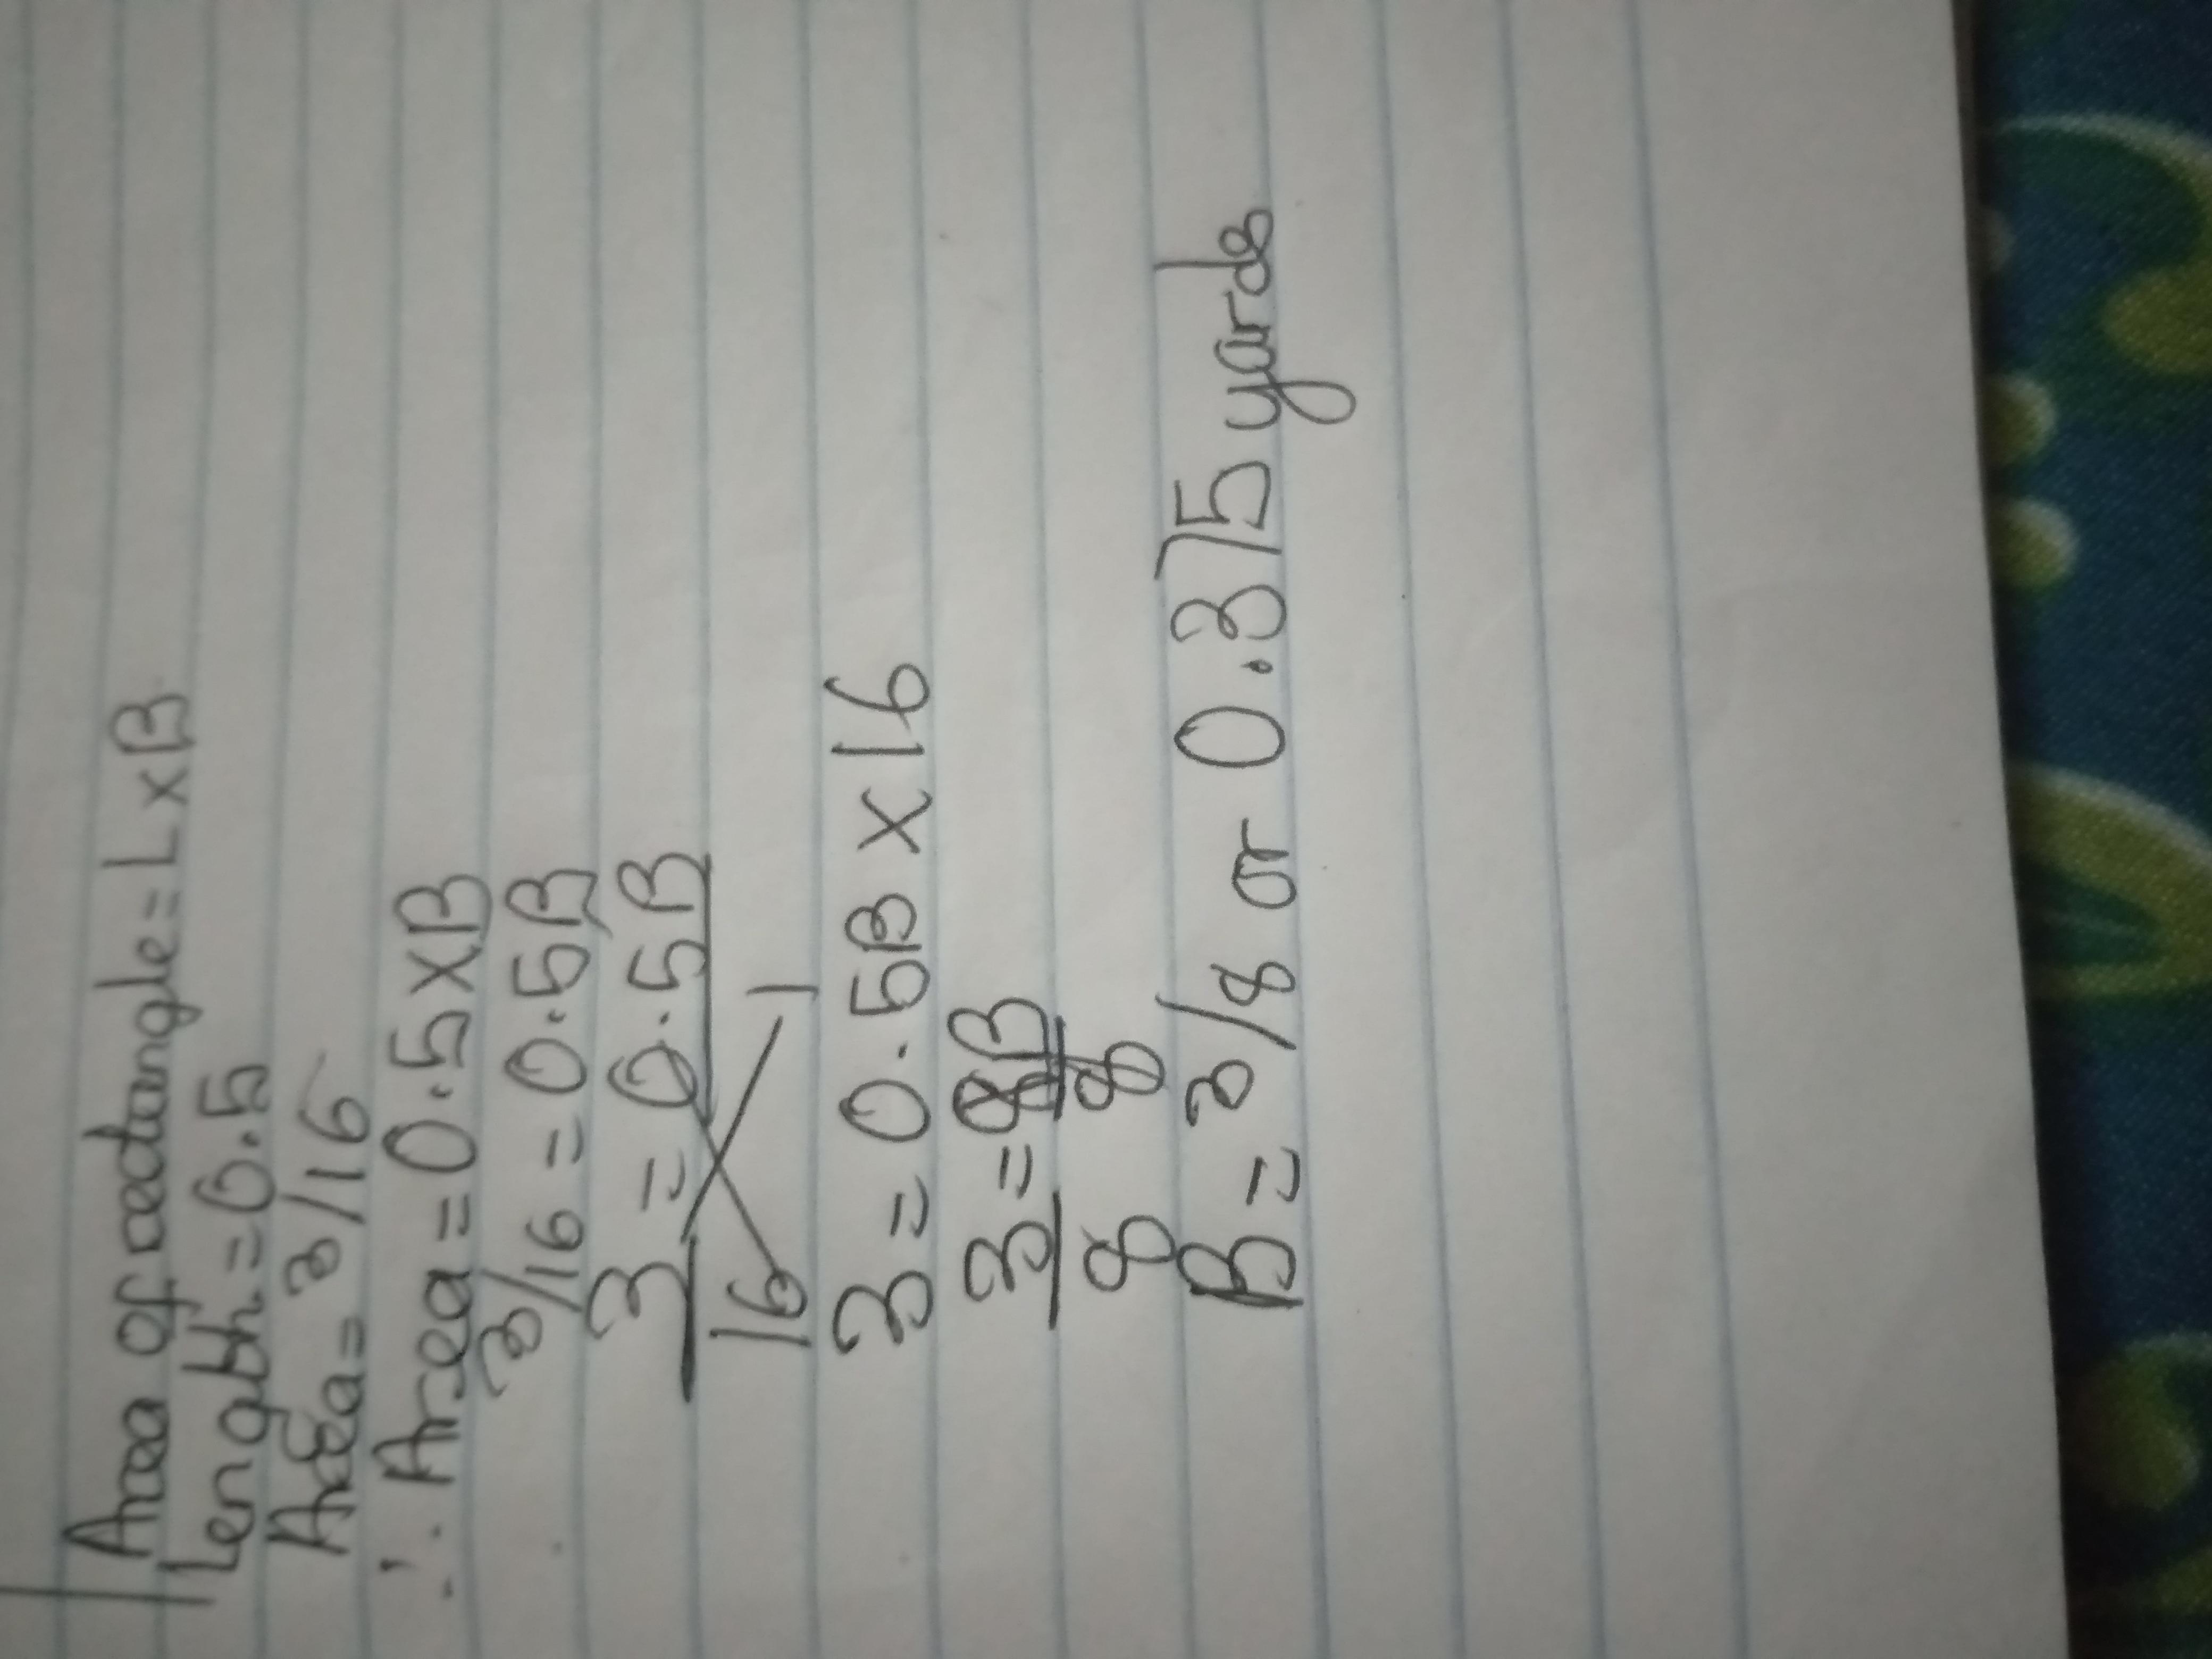 Area of rectangle = L x B
length = 0.5
Area = 3/16
∴ Area = 0.5 x B
3/16 = 0.5B
3 = 0.5B
16 1
3 = 0.5B x 16
3 = 8B
8 8
B = 3/8 or 0.375 yards